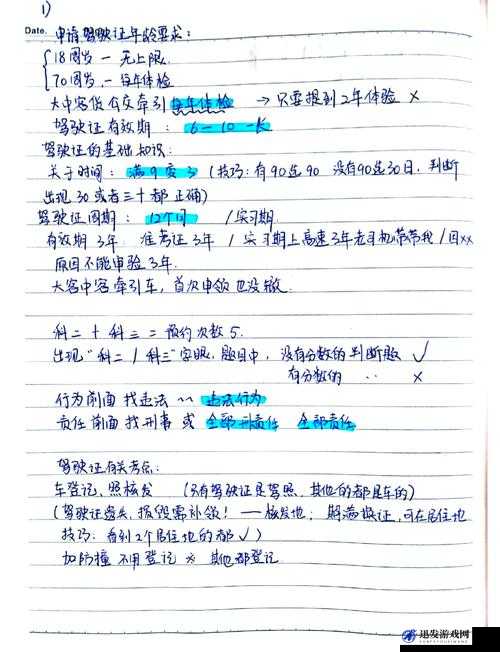 1)
Date.
申请驾驶证年龄要求：
18周岁 — 无上限.
70周岁, — 每年体检
大中客低公交牵引每年体检 → 只要提到2年体验 ×
驾驶证有效期 : 6 — 10 — 长
驾驶证的基础知识：
关于时间： 满9变3 (技巧：有90选90 没有90选30日, 判断
出现30或者三十都正确)
驾驶证周期： 12个月 / 实习期.
有效期3年. 准考证3年 / 实习期上高速3年老司机带带我 / 因××
原因不能申验3年.
大客中客牵引车, 首次申领也没辙.
科二 + 科三 = 预约次数 5.
出现"科二 / 科三"字眼, 题目中, 没有分数的判断题 ✓
有分数的 ‥ ×
行为前面找违法 ~ 违法行为
责任前面找刑事 或 全部刑责任 全部责任
驾驶证有关考点:
车登记、照核发 (只有驾驶证是驾照, 其他的都是车的)
(驾驶证遗失, 损毁需补领! — 核发地; 期满换证, 可在居住地
技巧: 看到2个居住地的都✓)
加防撞 不用登记 其他都登记
迅发游戏网